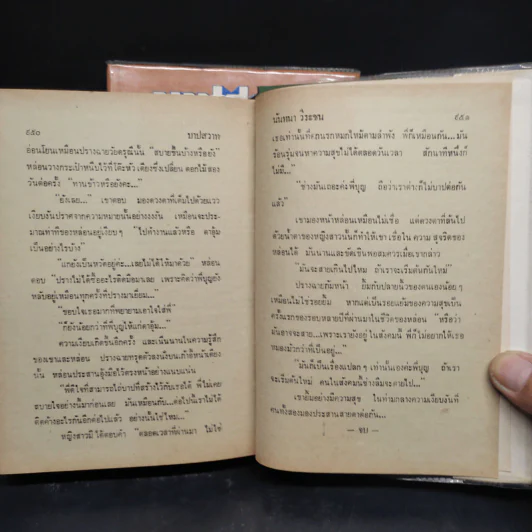 ๖๕๐ บาปสวาท
อ่อนโยนเหมือนปรางฉายวัยดรุณีนั้น “สบายขึ้นบ้างหรือยัง”
หล่อนวางกระเป๋าหนีบไว้ที่โต๊ะหัวเตียงซึ่งเปลี่ยน ดอกไม้ สอง
วันต่อครั้ง “ทานข้าวหรือยังคะ...”
“ยังเลย...” เขาตอบ มองดวงตาที่เต็มไปด้วยแวว
เงียบงันปราศจากความหมายนั้นอย่างงงงัน เหมือนจะประ-
มาณท่าทีของหล่อนอยู่เงียบๆ “ไปทำงานแล้วหรือ ตาอุ้ม
เป็นอย่างไรบ้าง”
“แกยังเป็นหวัดอยู่ค่ะ...เลยไม่ได้ให้มาด้วย” หล่อน
ตอบ “ปรางไม่ได้ซื้ออะไรติดมือมาเลย เพราะคิดว่าพี่บุญยัง
หลับอยู่เหมือนทุกครั้งที่ปรางมาเยี่ยม...”
“ขอบใจเธอมากที่พยายามเอาใจใส่พี่”
“ก็ยังน้อยกว่าที่พี่บุญให้แก่ตาอุ้ม...”
ความเงียบเกิดขึ้นอีกครั้ง และเนิ่นนานในความรู้สึก
ของเขาและหล่อน ปรางฉายทรุดตัวลงนั่งบนเก้าอี้หน้าเตียง
นั้น หล่อนประสานอุ้งมือไว้ตรงหน้าอย่างแนบแน่น
“พี่ดีใจที่สามารถไถ่บาปที่สร้างไว้กับเธอได้ พี่ไม่เคย
สบายใจอย่างนี้มาก่อนเลย มันเหมือนกับ...ต่อไปนี้เราไม่ได้
ติดค้างอะไรกันอีกต่อไปแล้ว อย่างนั้นใช่ไหม...”
หญิงสาวมิได้ตอบคำ “ตลอดเวลาที่ผ่านมา ไม่ใช่
นันทนา วีระชน ๖๕๑
เธอเท่านั้นที่ตกนรกหมกไหม้ตามลำพัง พี่ก็เหมือนกัน...มัน
ร้อนรุ่มจนหาความสุขไม่ได้ตลอดวันเวลา สักนาทีหนึ่งก็
ไม่มี...”
“ช่างมันเถอะค่ะพี่บุญ ถือว่าเราต่างก็ไม่บาปต่อกัน
แล้ว”
เขามองหน้าหล่อนเหมือนไม่เชื่อ แต่ดวงตาที่สั่นไป
ด้วยน้ำตาของหญิงสาวนั้นก็ทำให้เขา เชื่อใน ความ สุจริตของ
หล่อนได้ มันนานและขัดเขินพอสมควรเมื่อเขากล่าว
“มันจะสายเกินไปไหม ถ้าเราจะเริ่มต้นกันใหม่”
ปรางฉายก้มหน้า ยิ้มกับปลายนิ้วของตนเองน้อยๆ
เหมือนไม่ใช่รอยยิ้ม หากแต่เป็นรอยแย้มของความสุขเป็น
ครั้งแรกของรอบหลายปีที่ผ่านมาในชีวิตของหล่อน “หรือว่า
มันอาจจะสาย...เพราะเรายังอยู่ ในสังคมนี้ พี่ก็ไม่อยากให้เธอ
หมองมัวกว่าที่เป็นอยู่...”
“มันก็เป็นเรื่องแปลก ๆ เท่านั้นเองค่ะพี่บุญ ถ้าเรา
จะเริ่มต้นใหม่ คนในสังคมนี้ช่างลืมจะตายไป...”
เขายิ้มอย่างมีความสุข ในท่ามกลางความเงียบงันที่
คนทั้งสองมองประสานสายตาต่อกัน...
— จบ —